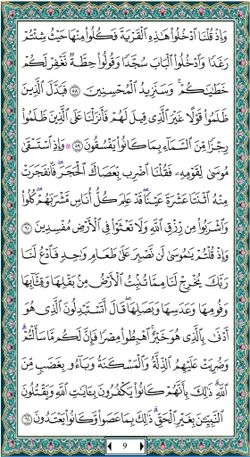 وَإِذْ قُلْنَا ٱدْخُلُوا۟ هَٰذِهِ ٱلْقَرْيَةَ فَكُلُوا۟ مِنْهَا حَيْثُ شِئْتُمْ
رَغَدًا وَٱدْخُلُوا۟ ٱلْبَابَ سُجَّدًا وَقُولُوا۟ حِطَّةٌ نَّغْفِرْ لَكُمْ
خَطَٰيَٰكُمْ ۚ وَسَنَزِيدُ ٱلْمُحْسِنِينَ ٥٨ فَبَدَّلَ ٱلَّذِينَ
ظَلَمُوا۟ قَوْلًا غَيْرَ ٱلَّذِى قِيلَ لَهُمْ فَأَنزَلْنَا عَلَى ٱلَّذِينَ ظَلَمُوا۟
رِجْزًا مِّنَ ٱلسَّمَآءِ بِمَا كَانُوا۟ يَفْسُقُونَ ٥٩ وَإِذِ ٱسْتَسْقَىٰ
مُوسَىٰ لِقَوْمِهِۦ فَقُلْنَا ٱضْرِب بِّعَصَاكَ ٱلْحَجَرَ ۖ فَٱنفَجَرَتْ
مِنْهُ ٱثْنَتَا عَشْرَةَ عَيْنًا ۖ قَدْ عَلِمَ كُلُّ أُنَاسٍ مَّشْرَبَهُمْ ۖ كُلُوا۟
وَٱشْرَبُوا۟ مِن رِّزْقِ ٱللَّهِ وَلَا تَعْثَوْا۟ فِى ٱلْأَرْضِ مُفْسِدِينَ ٦٠
وَإِذْ قُلْتُمْ يَٰمُوسَىٰ لَن نَّصْبِرَ عَلَىٰ طَعَامٍ وَٰحِدٍ فَٱدْعُ لَنَا
رَبَّكَ يُخْرِجْ لَنَا مِمَّا تُنۢبِتُ ٱلْأَرْضُ مِنۢ بَقْلِهَا وَقِثَّآئِهَا
وَفُومِهَا وَعَدَسِهَا وَبَصَلِهَا ۖ قَالَ أَتَسْتَبْدِلُونَ ٱلَّذِى هُوَ
أَدْنَىٰ بِٱلَّذِى هُوَ خَيْرٌ ۚ ٱهْبِطُوا۟ مِصْرًا فَإِنَّ لَكُم مَّا سَأَلْتُمْ ۗ
وَضُرِبَتْ عَلَيْهِمُ ٱلذِّلَّةُ وَٱلْمَسْكَنَةُ وَبَآءُو بِغَضَبٍ مِّنَ
ٱللَّهِ ۗ ذَٰلِكَ بِأَنَّهُمْ كَانُوا۟ يَكْفُرُونَ بِـَٔايَٰتِ ٱللَّهِ وَيَقْتُلُونَ
ٱلنَّبِيِّـۧنَ بِغَيْرِ ٱلْحَقِّ ۗ ذَٰلِكَ بِمَا عَصَوا۟ وَّكَانُوا۟ يَعْتَدُونَ ٦١
9